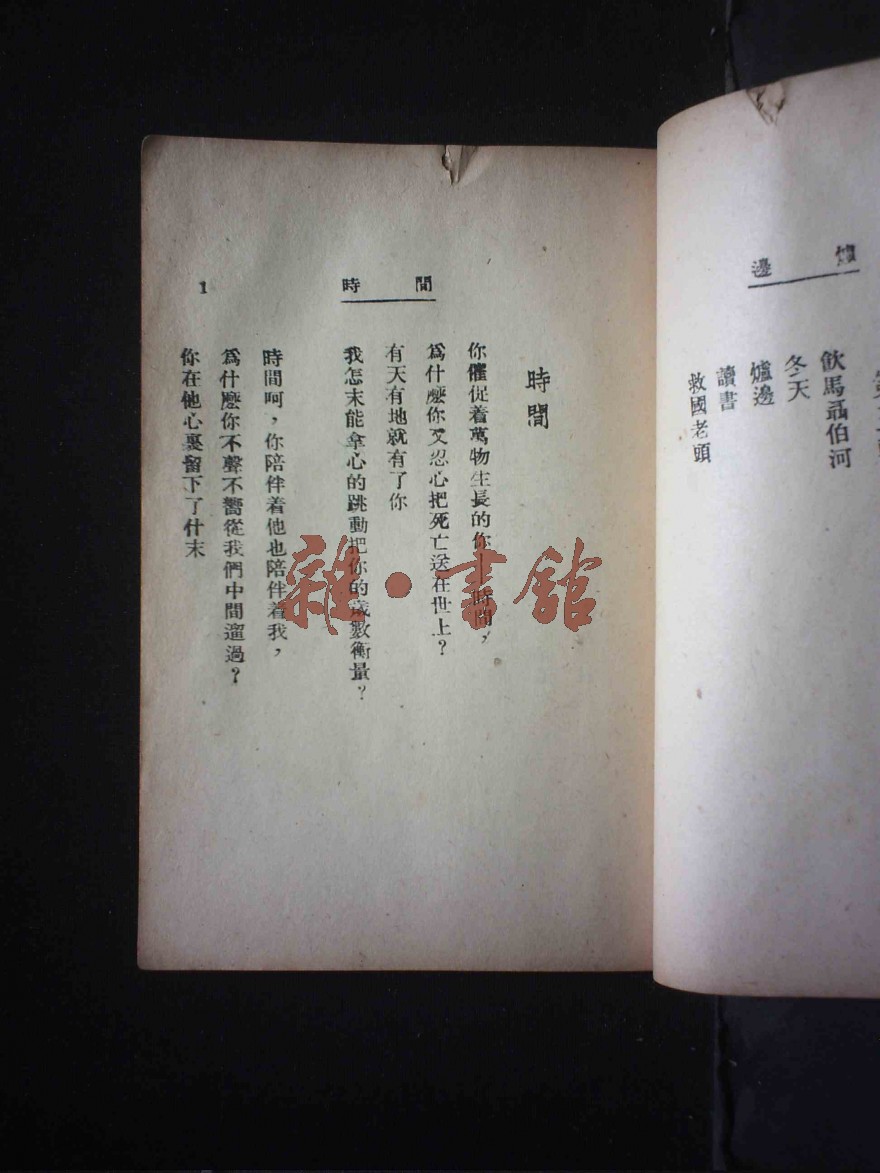 邊 爐
飲馬孟伯河
冬天
爐邊
讀書
救國老頭
時間
1
時間
你催促着萬物生長的你——時間，
爲什麽你又忍心把死亡送在世上？
有天有地就有了你
我怎末能拿心的跳動把你的歲數衡量？
時間呵，你陪伴着他也陪伴着我，
爲什麽你不聲不響從我們中間遛過？
你在他心裏留下了什末
雜·書舘